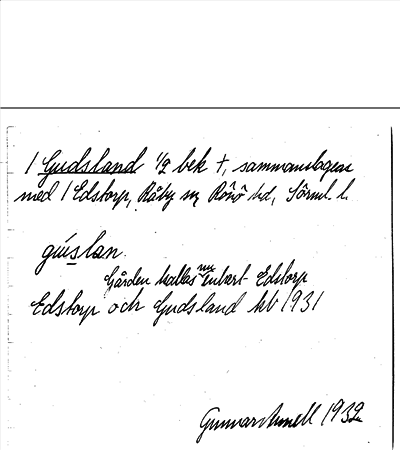 1 Gudsland 1/2 bek +, sammanslagen
med 1 Edstorp, Råby sn Rönö hd, Sörml. l.
gùslan.
Gården kallas nu enbart Edstorp
Edstorp och Gudsland kb 1931
Gunnar Arnell 1932